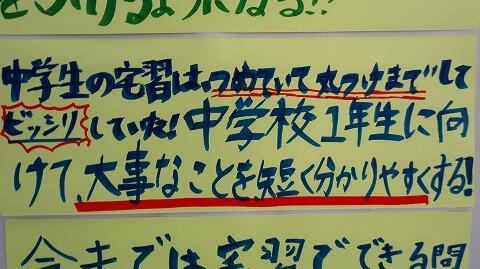 をつけるようになる!!
中学生の宅習は、つめていて丸つけまでして
ビッシリしていた!中学校1年生に向
けて、大事なことを短く分かりやすくする!
今までは宅習でできる問